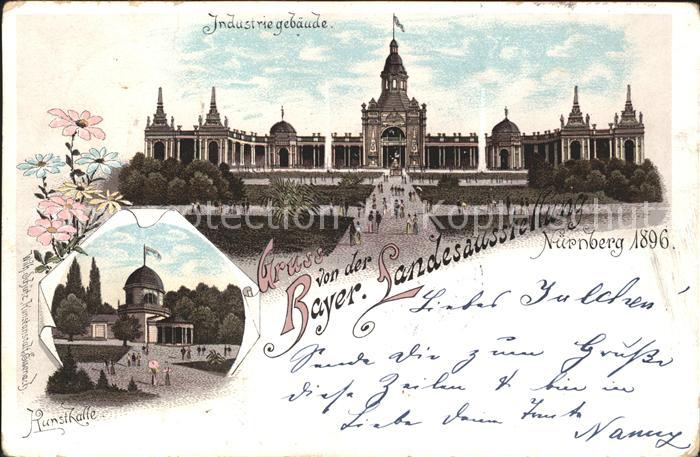 Industriegebäude.
Protection Kopierschutz
Gruss
von der
Bayer. Landesausstellung
Nürnberg 1896.
Kunsthalle
Liebes Julchen!
Sende Dir zum Gruße
diese Zeilen & bin in
Liebe Deine
Nanny